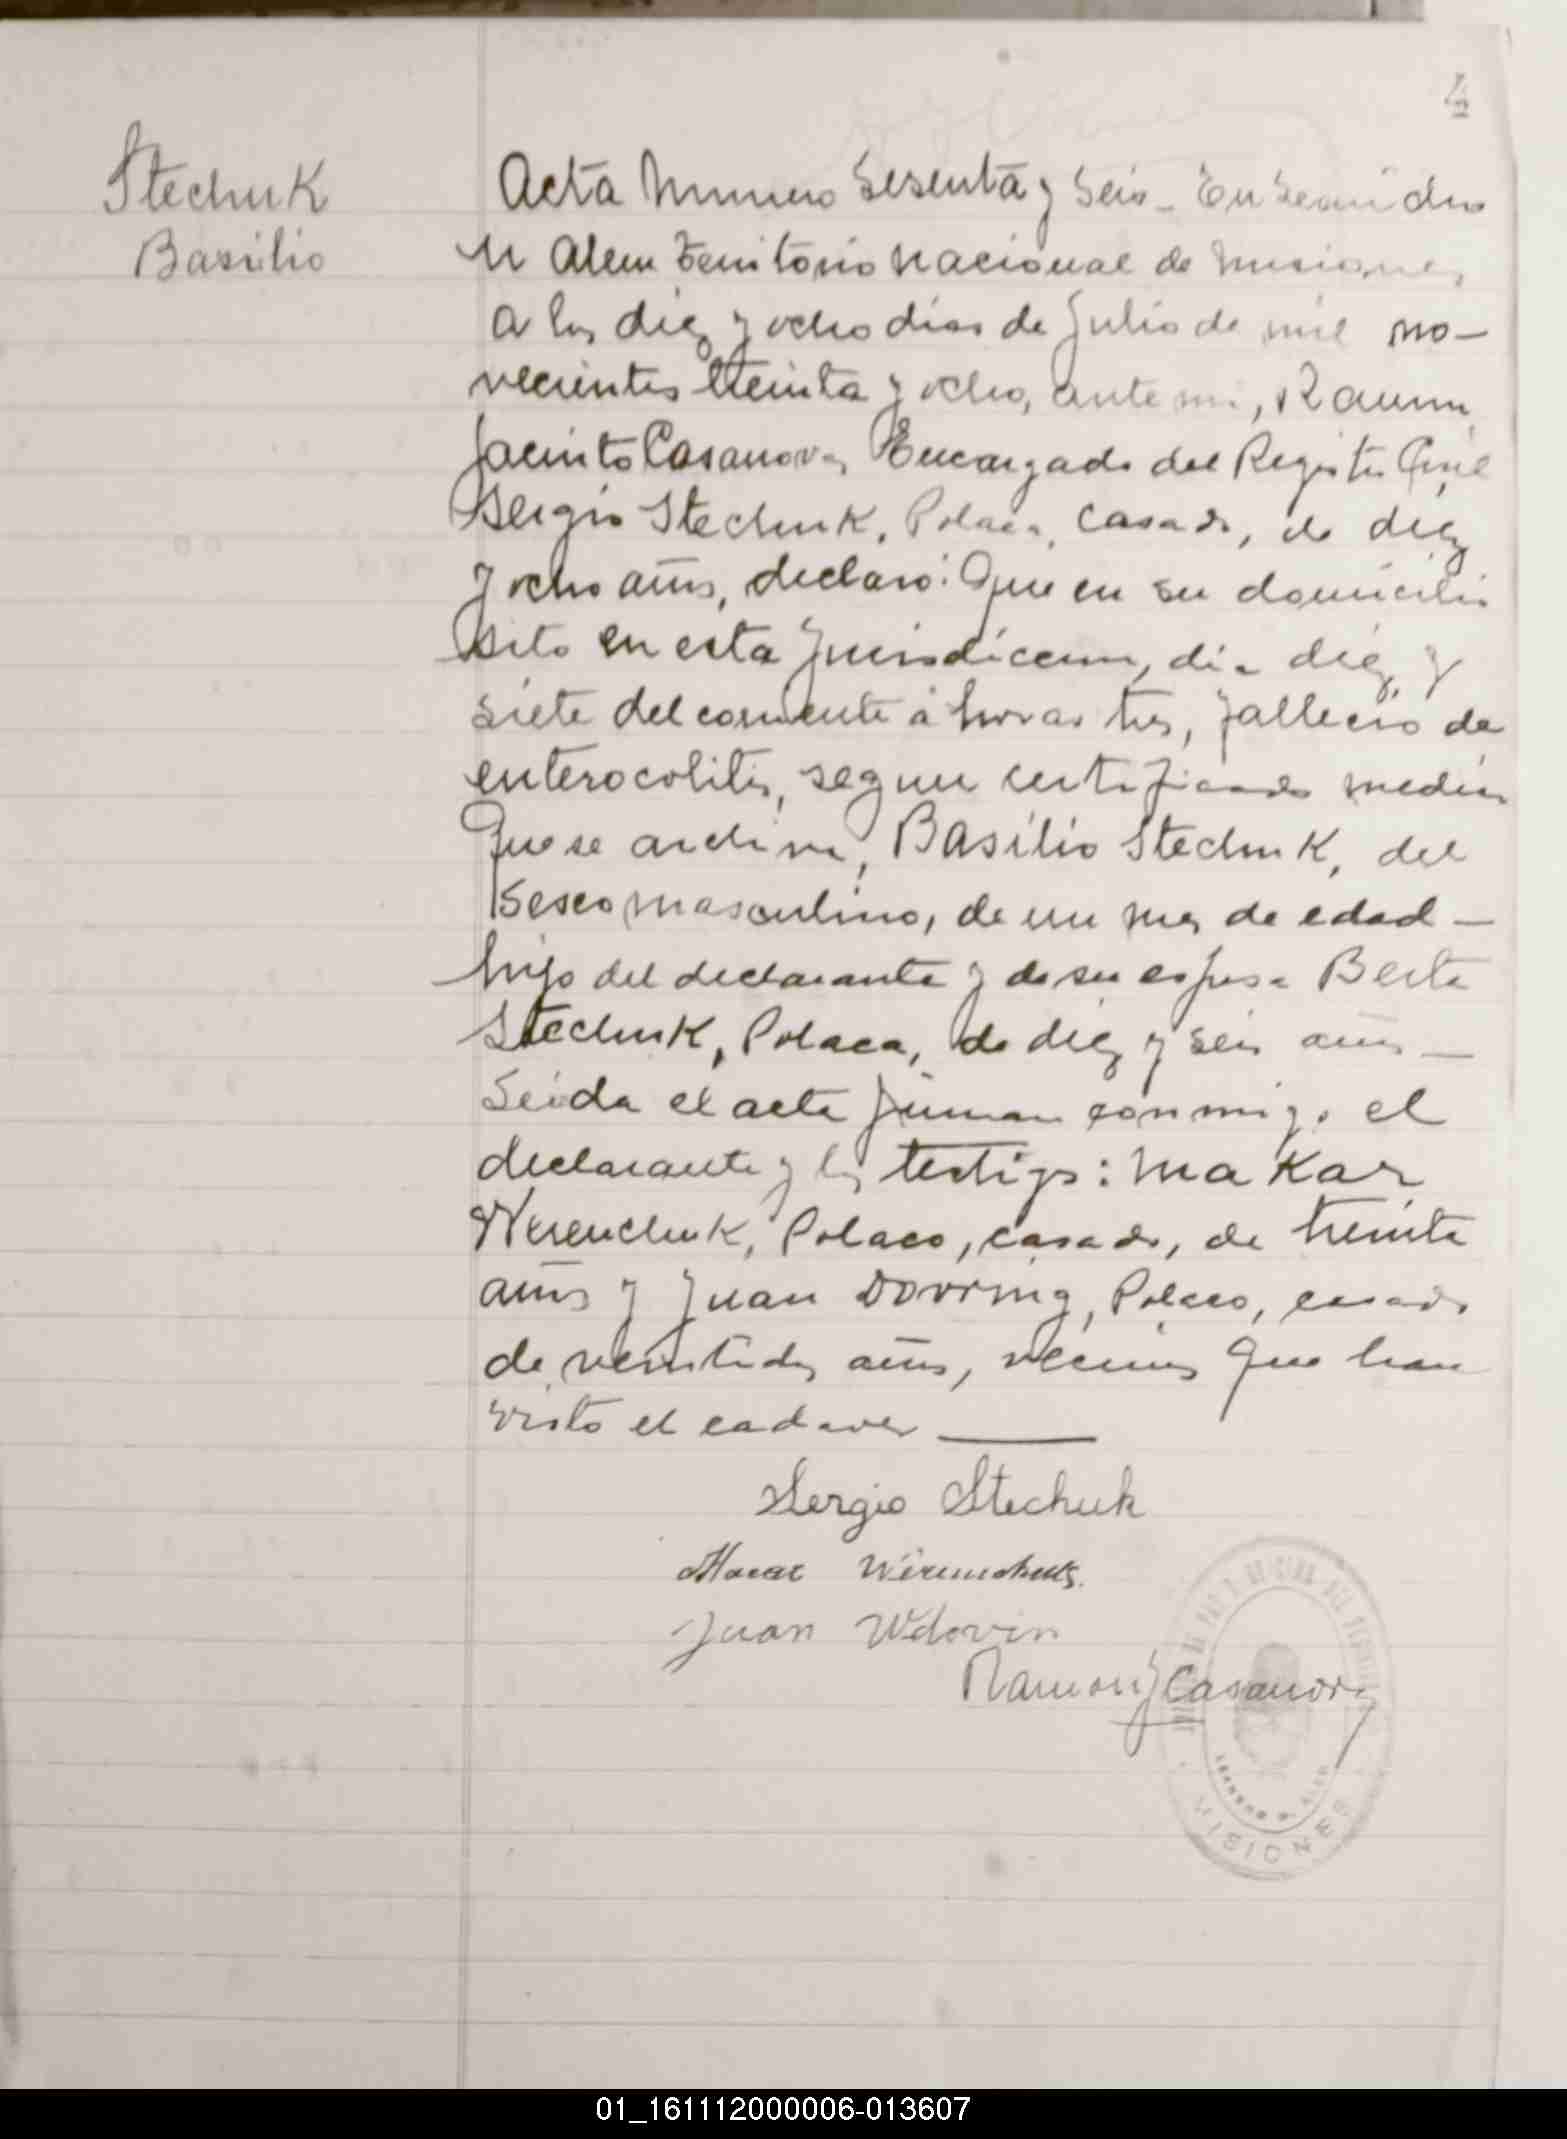 42
Stechuk
Basilio
Acta Numero Sesenta y Seis_ En Leandro
N Alem Territorio Nacional de Misiones
a los diez y ocho dias de Julio de mil no-
vecientos treinta y ocho, ante mi, Ramon
Jacinto Casanova, Encargado del Registro Civil
Sergio Stechuk, Polaco, casado, de diez
y ocho años, declaró: Que en su domicilio
sito en esta jurisdiccion, dia diez y
siete del corriente á horas tres, fallecio de
enterocolitis, segun certificado medico
que se archiva, Basilio Stechuk, del
sexo masculino, de un mes de edad -
hijo del declarante y de su esposa Berta
Stechuk, Polaca, de diez y seis años -
Leida el acta firman conmigo el
declarante y los testigos: Makar
Werenchuk, Polaco, casado, de treinta
años y Juan Dovring, Polaco, casado
de veintidos años, vecinos que han
visto el cadaver
Sergio Stechuk
Juan Wdovin
Ramon J Casanova
MISIONES
01_161112000006-013607